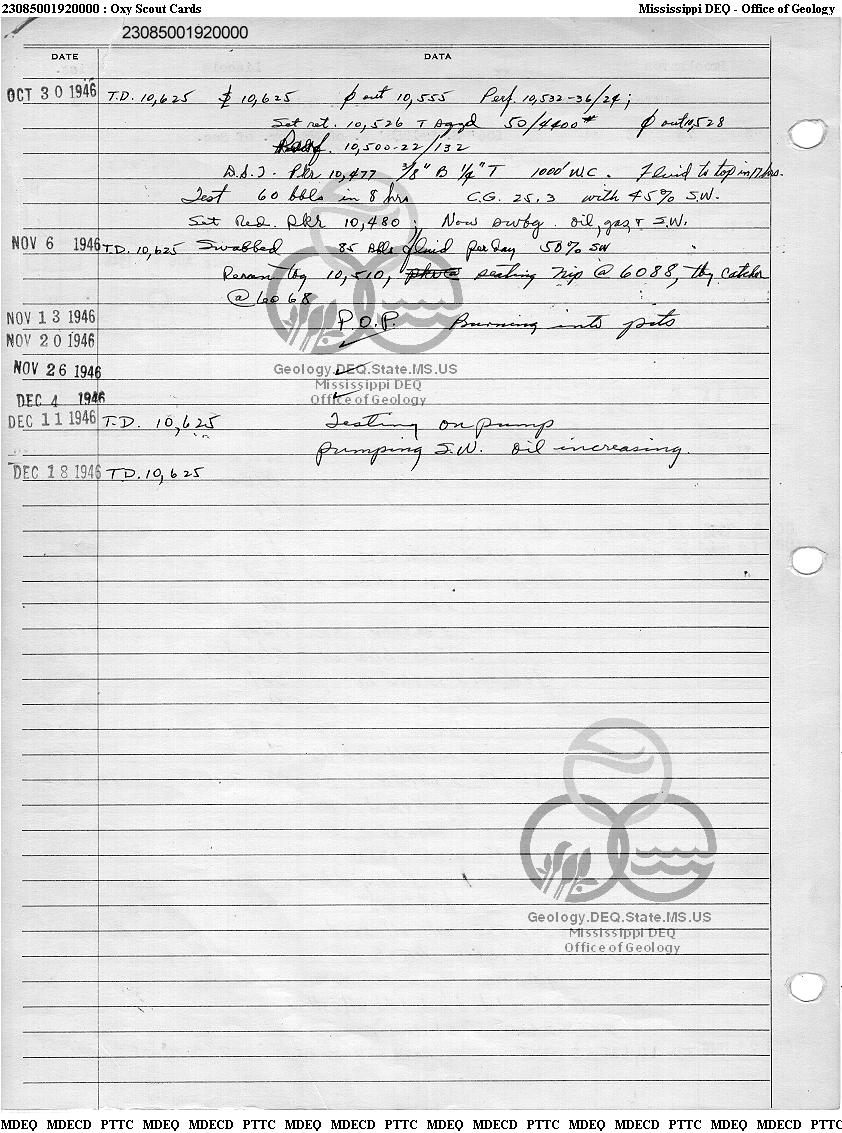 23085001920000 : Oxy Scout Cards Mississippi DEQ - Office of Geology
23085001920000
DATE DATA
OCT 30 1946 T.D. 10,625 10,625 out 10,555 Perf. 10,532-36/24;
Set ret. 10,526 50/4400# out 10,528
10,500-22/132
D.S.T. Pkr 10,477 3/8" B 1/4" T 1000' W.C. Fluid to top in hrs.
Test 60 bbls in 8 hrs C.G. 25.3 with 45% S.W.
Set Red. Pkr 10,480; Now swbg. oil, gas, & S.W.
NOV 6 1946 T.D. 10,625 Swabbed 85 bbls fluid per day 50% SW
Reran tbg 10,510, seating nip @ 6088, tbg catcher
@ 6068
NOV 13 1946 P.O.P. Burning into pits
NOV 20 1946
NOV 26 1946
Geology.DEQ.State.MS.US
Mississippi DEQ
DEC 4 1946
Office of Geology
DEC 11 1946 T.D. 10,625 Testing on pump
pumping S.W. oil increasing.
DEC 18 1946 T.D. 10,625
Geology.DEQ.State.MS.US
Mississippi DEQ
Office of Geology
MDEQ MDECD PTTC MDEQ MDECD PTTC MDEQ MDECD PTTC MDEQ MDECD PTTC MDEQ MDECD PTTC MDEQ MDECD PTTC